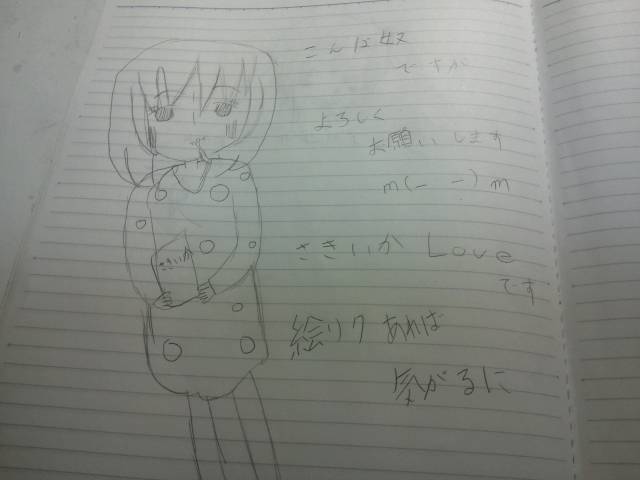 こんな奴
ですが
よろしく
お願いします
m(_ _)m
さきいか Love
です
絵リク あれば
気がるに
さきいか